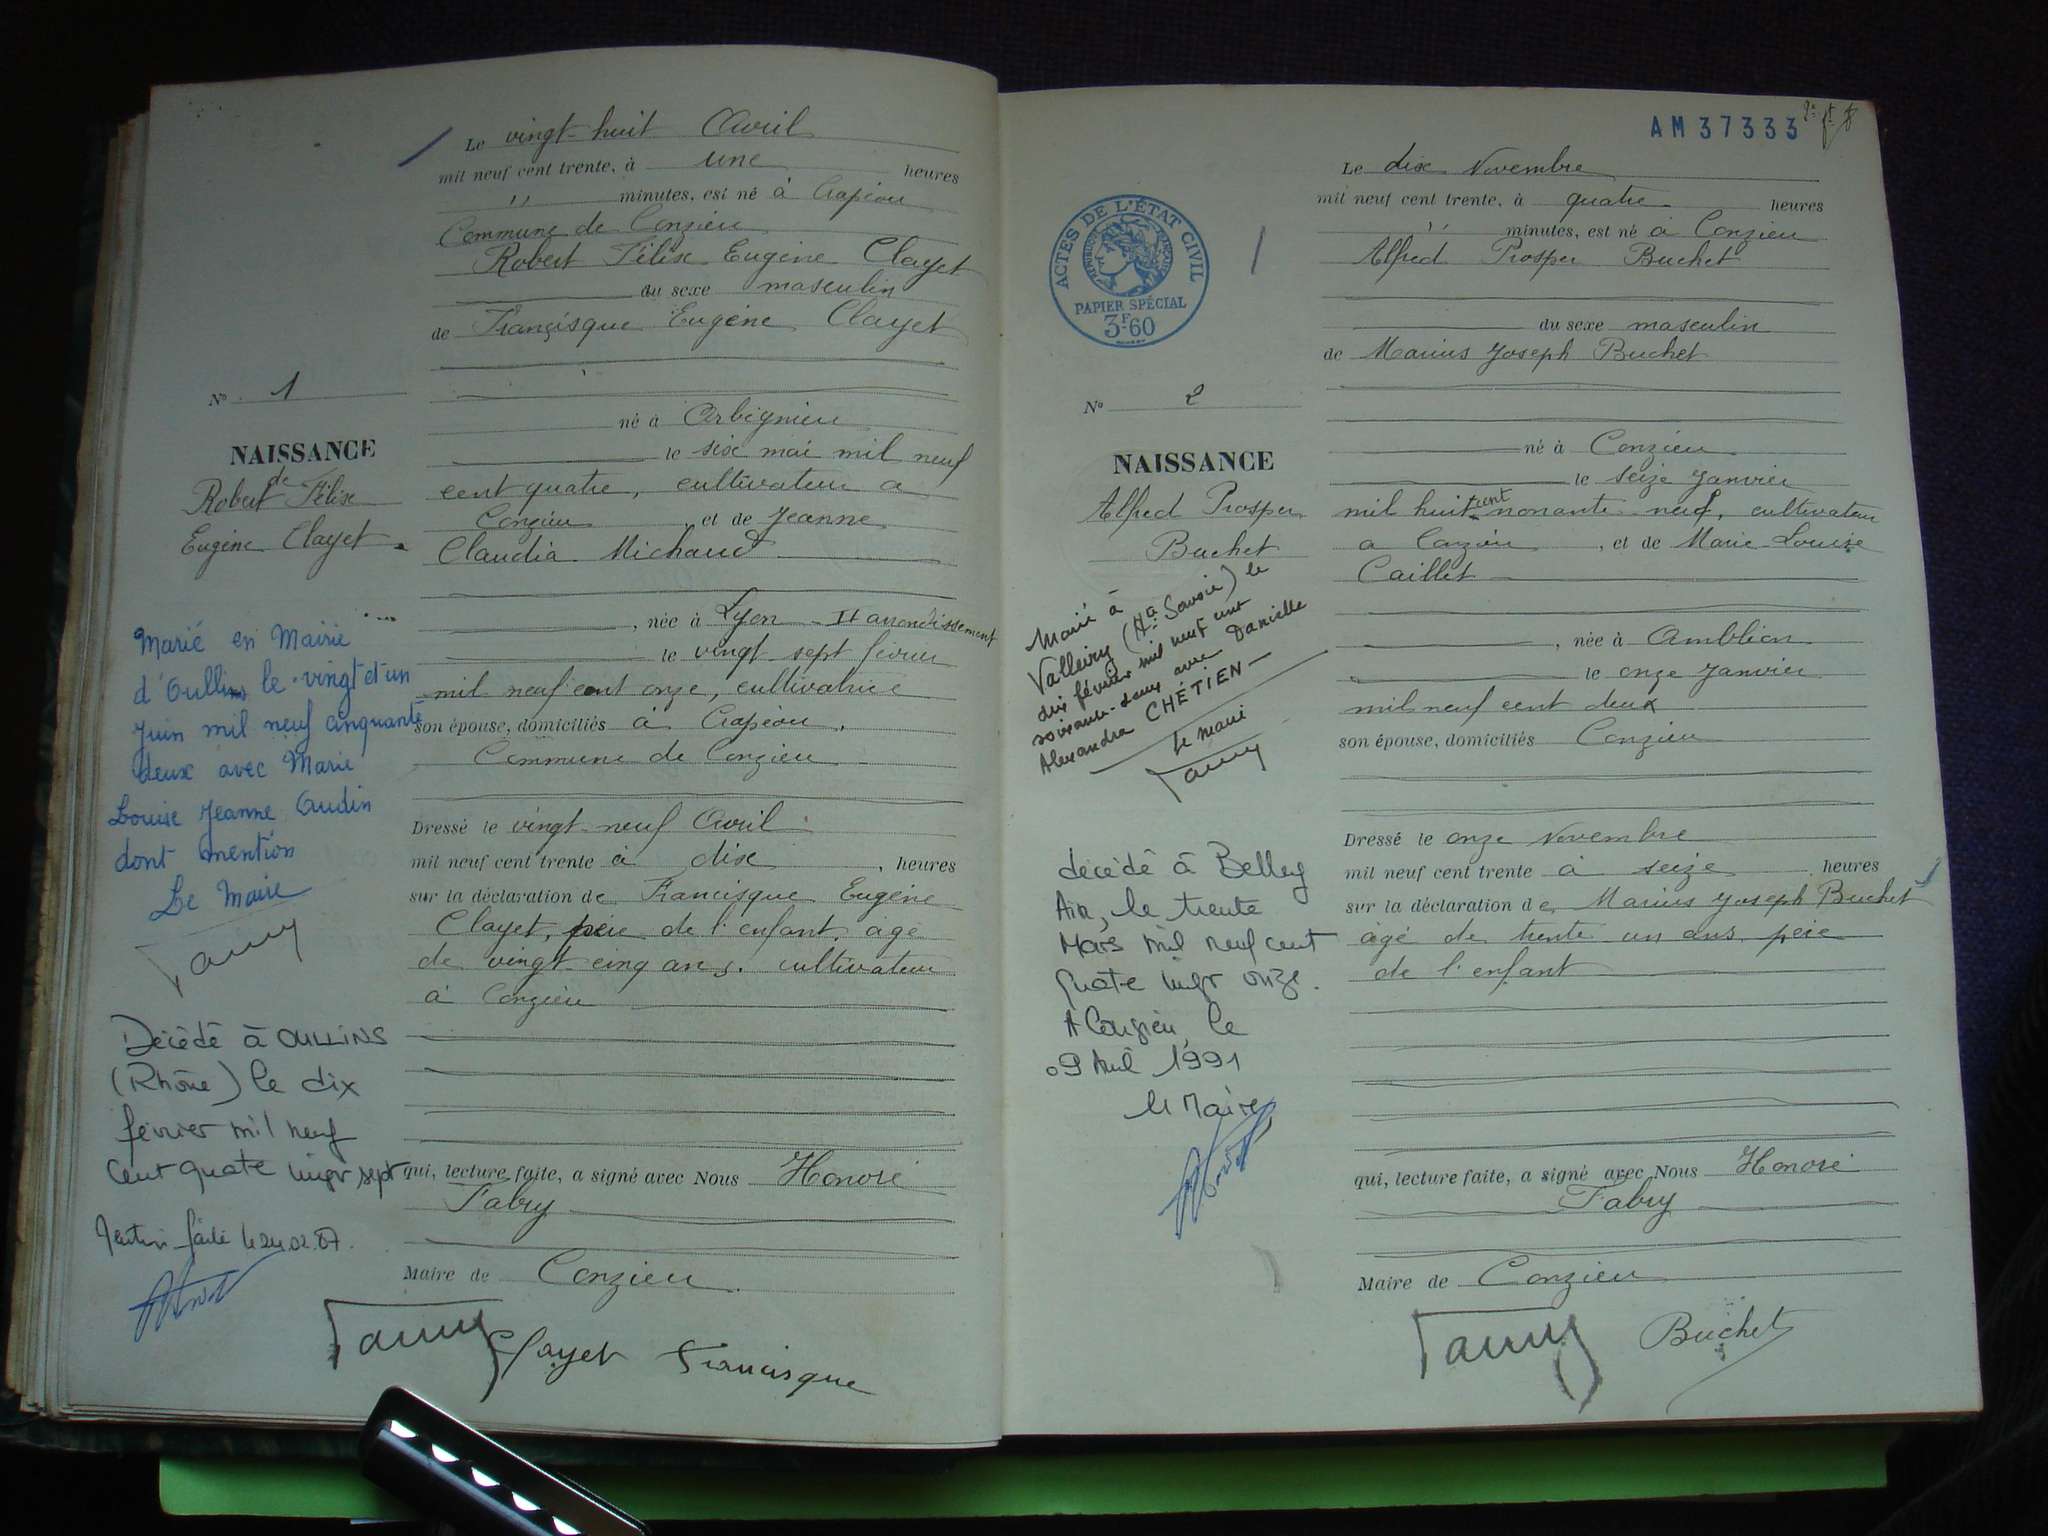 Le vingt huit Avril
mil neuf cent trente, à une heures
" minutes, est né à Crapéou
Commune de Conzieu
Robert Félix Eugène Clayet
du sexe masculin
de Françisque Eugène Clayet
né à Arbignieu
le six mai mil neuf
cent quatre, cultivateur a
Conzieu, et de Jeanne
Claudia Michaud
, née à Lyon - II arrondissement
le vingt sept février
mil neuf cent onze, cultivatrice
son épouse, domiciliés à Crapéou,
Commune de Conzieu
Dressé le vingt neuf Avril
mil neuf cent trente à dix, heures
sur la déclaration de Francisque Eugène
Clayet, père de l'enfant, agé
de vingt cinq ans, cultivateur
à Conzieu
qui, lecture faite, a signé avec Nous Honoré
Fabry
Maire de Conzieu
Fabry Clayet Francisque
No 1
NAISSANCE
de
Robert Félix
Eugène Clayet
Marié en Mairie
d'Oullins le vingt et un
Juin mil neuf cinquante
deux avec Marie
Louise Jeanne Audin
dont mention
Le Maire
Fabry
Décédé à OULLINS
(Rhône) le dix
février mil neuf
cent quatre vingt sept
Mention faite le 24.02.87.
AM37333
ACTES DE L'ÉTAT CIVIL
RÉPUBLIQUE FRANÇAISE
PAPIER SPÉCIAL
3F.60
Le dix Novembre
mil neuf cent trente, à quatre heures
" minutes, est né à Conzieu
Alfred Prosper Buchet
du sexe masculin
de Marius Joseph Buchet
né à Conzieu
le seize Janvier
mil huit cent nonante neuf, cultivateur
a Conzieu, et de Marie Louise
Caillet
, née à Ambléon
le onze Janvier
mil neuf cent deux
son épouse, domiciliés Conzieu
Dressé le onze Novembre
mil neuf cent trente à seize heures
sur la déclaration de Marius Joseph Buchet
âgé de trente un ans père
de l'enfant
qui, lecture faite, a signé avec Nous Honoré
Fabry
Maire de Conzieu
Fabry Buchet
No 2
NAISSANCE
Alfred Prosper
Buchet
Marié à
Valleiry (Hte Savoie) le
dix février mil neuf cent
soixante-deux avec Danielle
Alexandra CHÉTIEN
Le maire
Fabry
décédé à Belley
Ain, le trente
Mars mil neuf cent
quatre vingt onze.
A Conzieu, le
09 Avril 1991
Le Maire